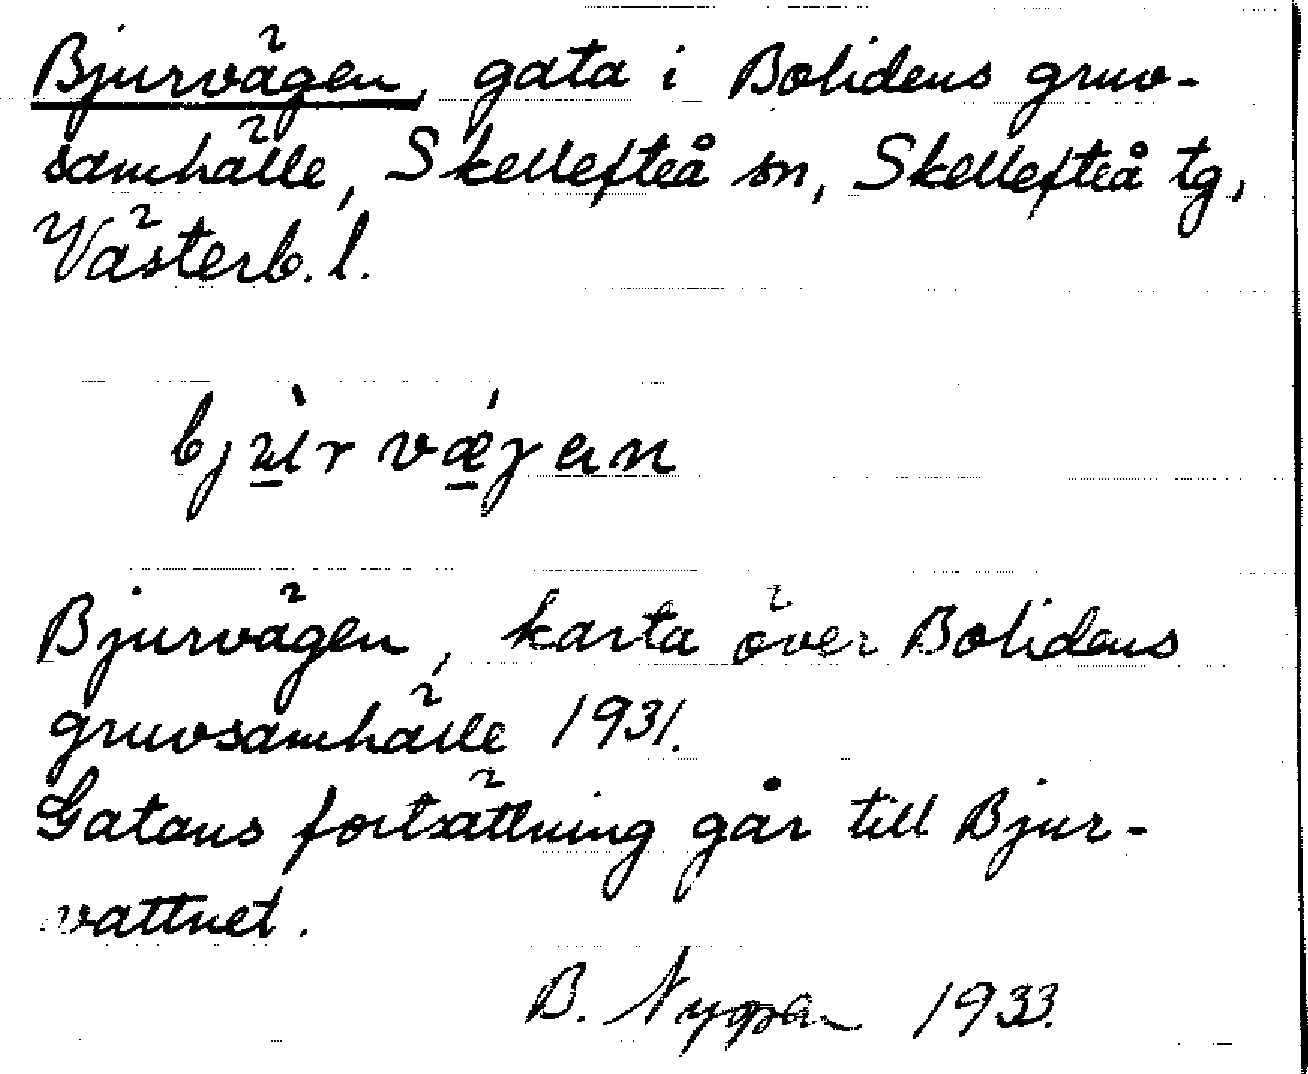 Bjurvägen, gata i Bolidens gruv-
samhälle, Skellefteå sn, Skellefteå tg,
Västerb. l.
Bjurvägen, karta över Bolidens
gruvsamhälle 1931.
Gatans fortsättning går till Bjur-
vattnet.
B. 1933.